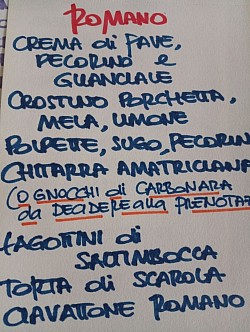 ROMANO
CREMA di FAVE,
PECORINO e
GUANCIALE
CROSTINO PORCHETTA,
MELA, LIMONE
POLPETTE, SUGO, PECORINO
CHITARRA AMATRICIANA
(O GNOCCHI di CARBONARA
da DECIDERE alla PRENOTAZ
FAGOTTINI di
SALTIMBOCCA
TORTA di SCAROLA
CIAVATTONE ROMANO